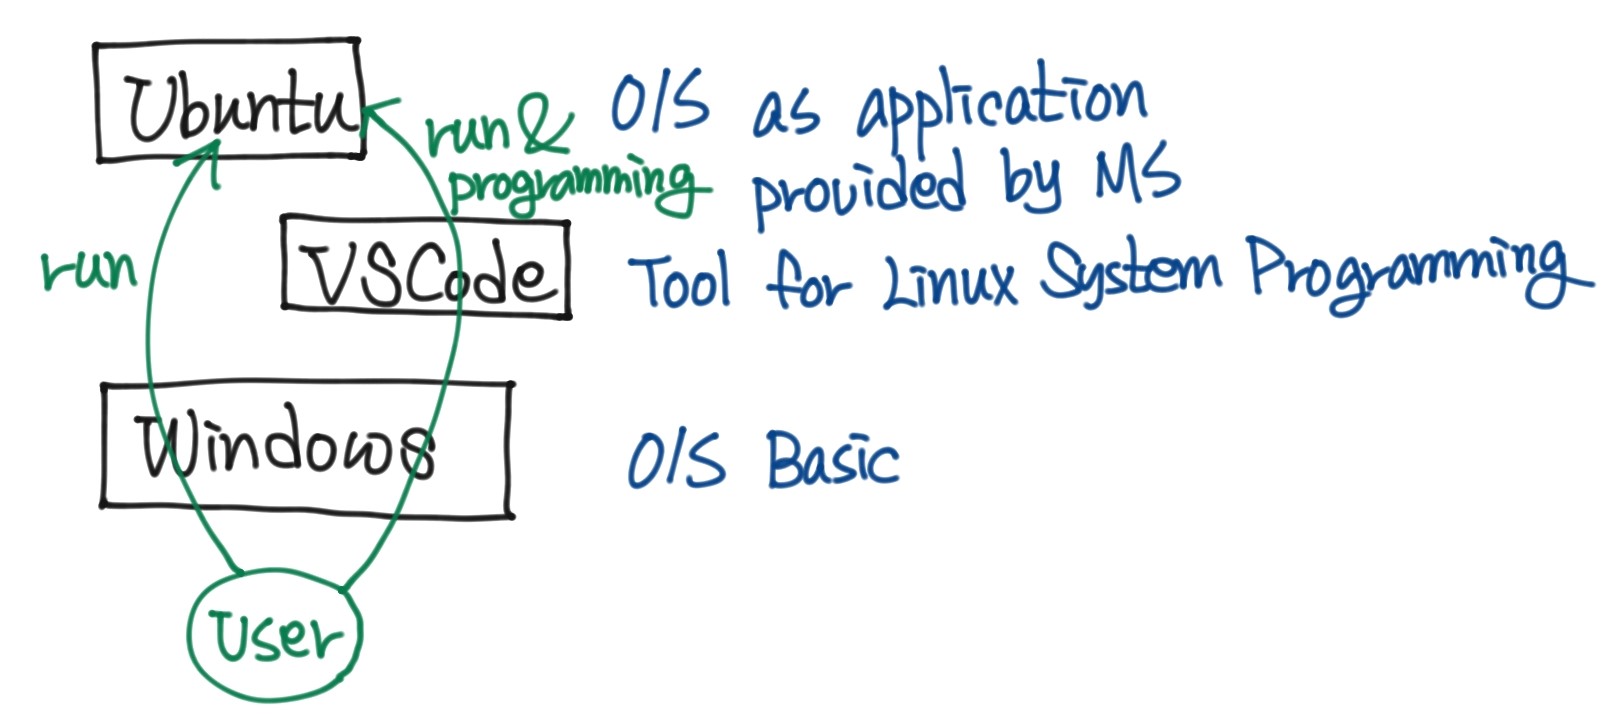 Ubuntu
run &
programming
O/S as application
provided by MS
run
VSCode
Tool for Linux System Programming
Windows
O/S Basic
User